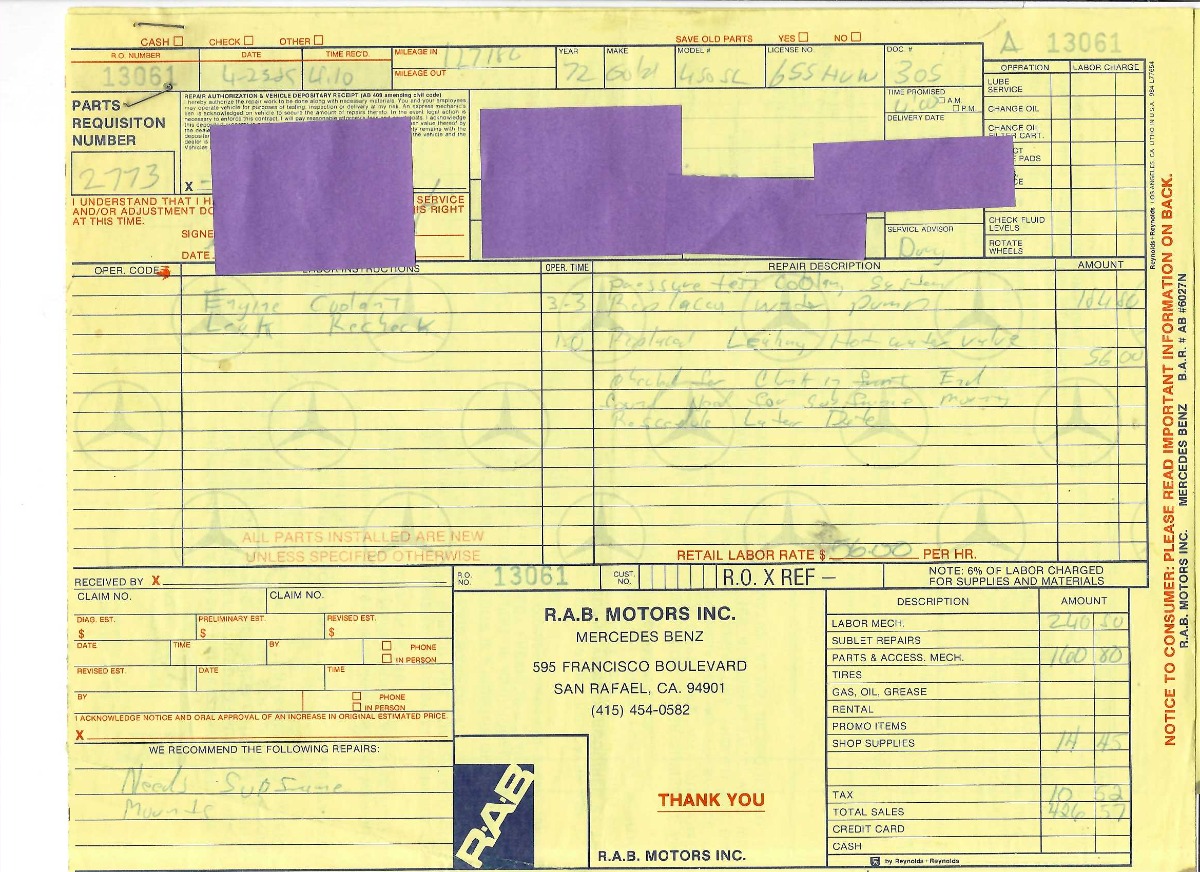 CASH CHECK OTHER
SAVE OLD PARTS YES NO
R.O. NUMBER DATE TIME REC'D. MILEAGE IN YEAR MAKE MODEL # LICENSE NO. DOC. #
13061 4:10 72 Gold 450SL 655 HUW 305
MILEAGE OUT
A 13061
OPERATION LABOR CHARGE
LUBE SERVICE
CHANGE OIL
CHANGE OIL
FILTER CART.
PADS
CHECK FLUID LEVELS
ROTATE WHEELS
PARTS REQUISITON NUMBER
2773
REPAIR AUTHORIZATION & VEHICLE DEPOSITARY RECEIPT (AB 409 amending civil code)
I hereby authorize the repair work to be done along with necessary materials. You and your employees
may operate vehicle for purposes of testing, inspection or delivery at my risk. An express mechanic's
X
TIME PROMISED
A.M.
P.M.
DELIVERY DATE
SERVICE ADVISOR
I UNDERSTAND THAT I SERVICE
AND/OR ADJUSTMENT THIS RIGHT
AT THIS TIME.
SIGNE
DATE
OPER. CODE LABOR INSTRUCTIONS OPER. TIME REPAIR DESCRIPTION AMOUNT
Pressure test Coolant System
Engine Coolant 3-3 Replaced water pump 184 80
Leak Recheck
1.0 Replaced Leaking Hot water valve
56 00
Checked for Clunk in front End
found Need for subframe
Later Date
ALL PARTS INSTALLED ARE NEW
UNLESS SPECIFIED OTHERWISE
RETAIL LABOR RATE $ 56.00 PER HR.
RECEIVED BY X
R.O. NO. 13061 CUST. NO. R.O. X REF –
NOTE: 6% OF LABOR CHARGED
FOR SUPPLIES AND MATERIALS
CLAIM NO. CLAIM NO.
DIAG. EST. PRELIMINARY EST. REVISED EST.
$ $ $
DATE TIME BY PHONE
IN PERSON
REVISED EST. DATE TIME
BY PHONE
IN PERSON
I ACKNOWLEDGE NOTICE AND ORAL APPROVAL OF AN INCREASE IN ORIGINAL ESTIMATED PRICE.
X
WE RECOMMEND THE FOLLOWING REPAIRS:
Needs Subframe
Mounts
R.A.B. MOTORS INC.
MERCEDES BENZ
595 FRANCISCO BOULEVARD
SAN RAFAEL, CA. 94901
(415) 454-0582
R.A.B
THANK YOU
R.A.B. MOTORS INC.
DESCRIPTION AMOUNT
LABOR MECH. 240 80
SUBLET REPAIRS
PARTS & ACCESS. MECH. 160 80
TIRES
GAS, OIL, GREASE
RENTAL
PROMO ITEMS
SHOP SUPPLIES 14 45
TAX 10 52
TOTAL SALES 426 57
CREDIT CARD
CASH
by Reynolds + Reynolds
NOTICE TO CONSUMER: PLEASE READ IMPORTANT INFORMATION ON BACK.
R.A.B. MOTORS INC. MERCEDES BENZ B.A.R. # AB #6027N
Reynolds + Reynolds LOS ANGELES, CA. LITHO IN U.S.A.